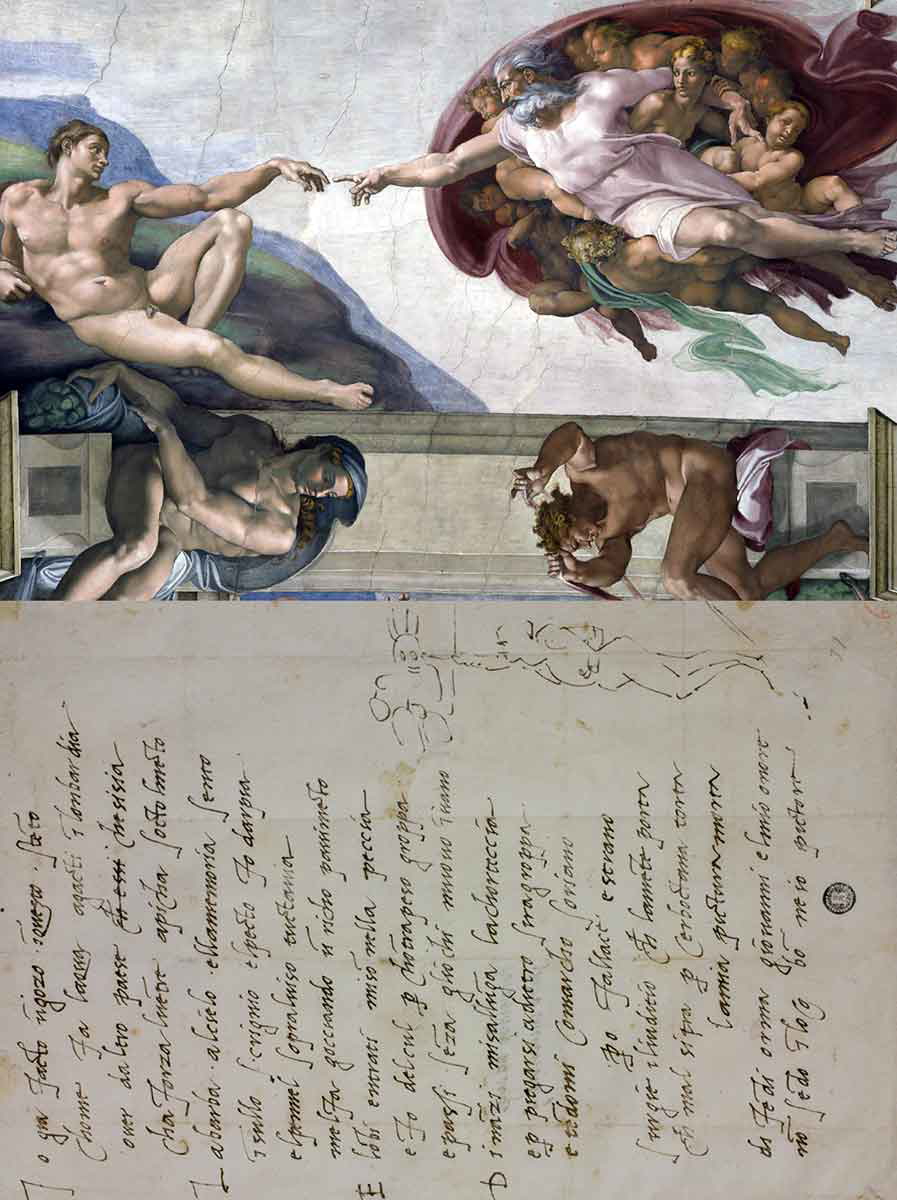 I o gia facto ngozo i queſto ſteto
chome fa laqua agacti ī lombardia
over daltro paese che ſisia
cha forza luētre apicha ſoctolmēto
L abarba alcielo ellamemoria ſento
īſullo ſcrignio e pecto fo darpia
e lpennel ſopraluiſo tuctauia
melfa gocciando ū richo pauimēto
E lobi entrati miſō nella peccia
e fo delcul p chōtrapeso groppa
e paſſi ſēza gliochi muouo īuano
D ināzi miſallūga lachorteccia
e p piegarsi adietro ſiragroppa
e tēdomi comarcho ſoriano
po fallace e ſtrano
ſurgie iliuditio ch lamēte porta
ch mal ſitra p cerboctana torta
lamia pictura morta
difēdi orma giouanni elmio onore
nō ſēdo īlog bō ne io pictore